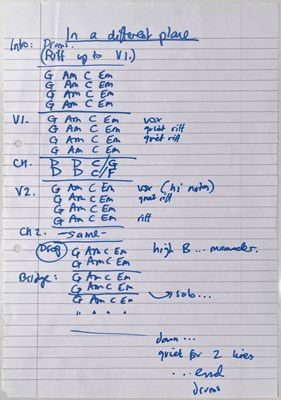 In a different place
Intro: Drums.
(Riff up to V1.)
G Am C Em
G Am C Em
G Am C Em
G Am C Em
V1. G Am C Em vox
G Am C Em quiet riff
G Am C Em quiet riff
G Am C Em
CH. D D C/G
D D C/F
V2. G Am C Em vox (hi notes)
G Am C Em quiet riff
G Am C Em
G Am C Em riff
CH2. -same-
Drop G Am C Em high B... meander.
G Am C Em
Bridge: G Am C Em
G Am C Em
G Am C Em solo...
" " " "
down...
quiet for 2 lines
...end
drums